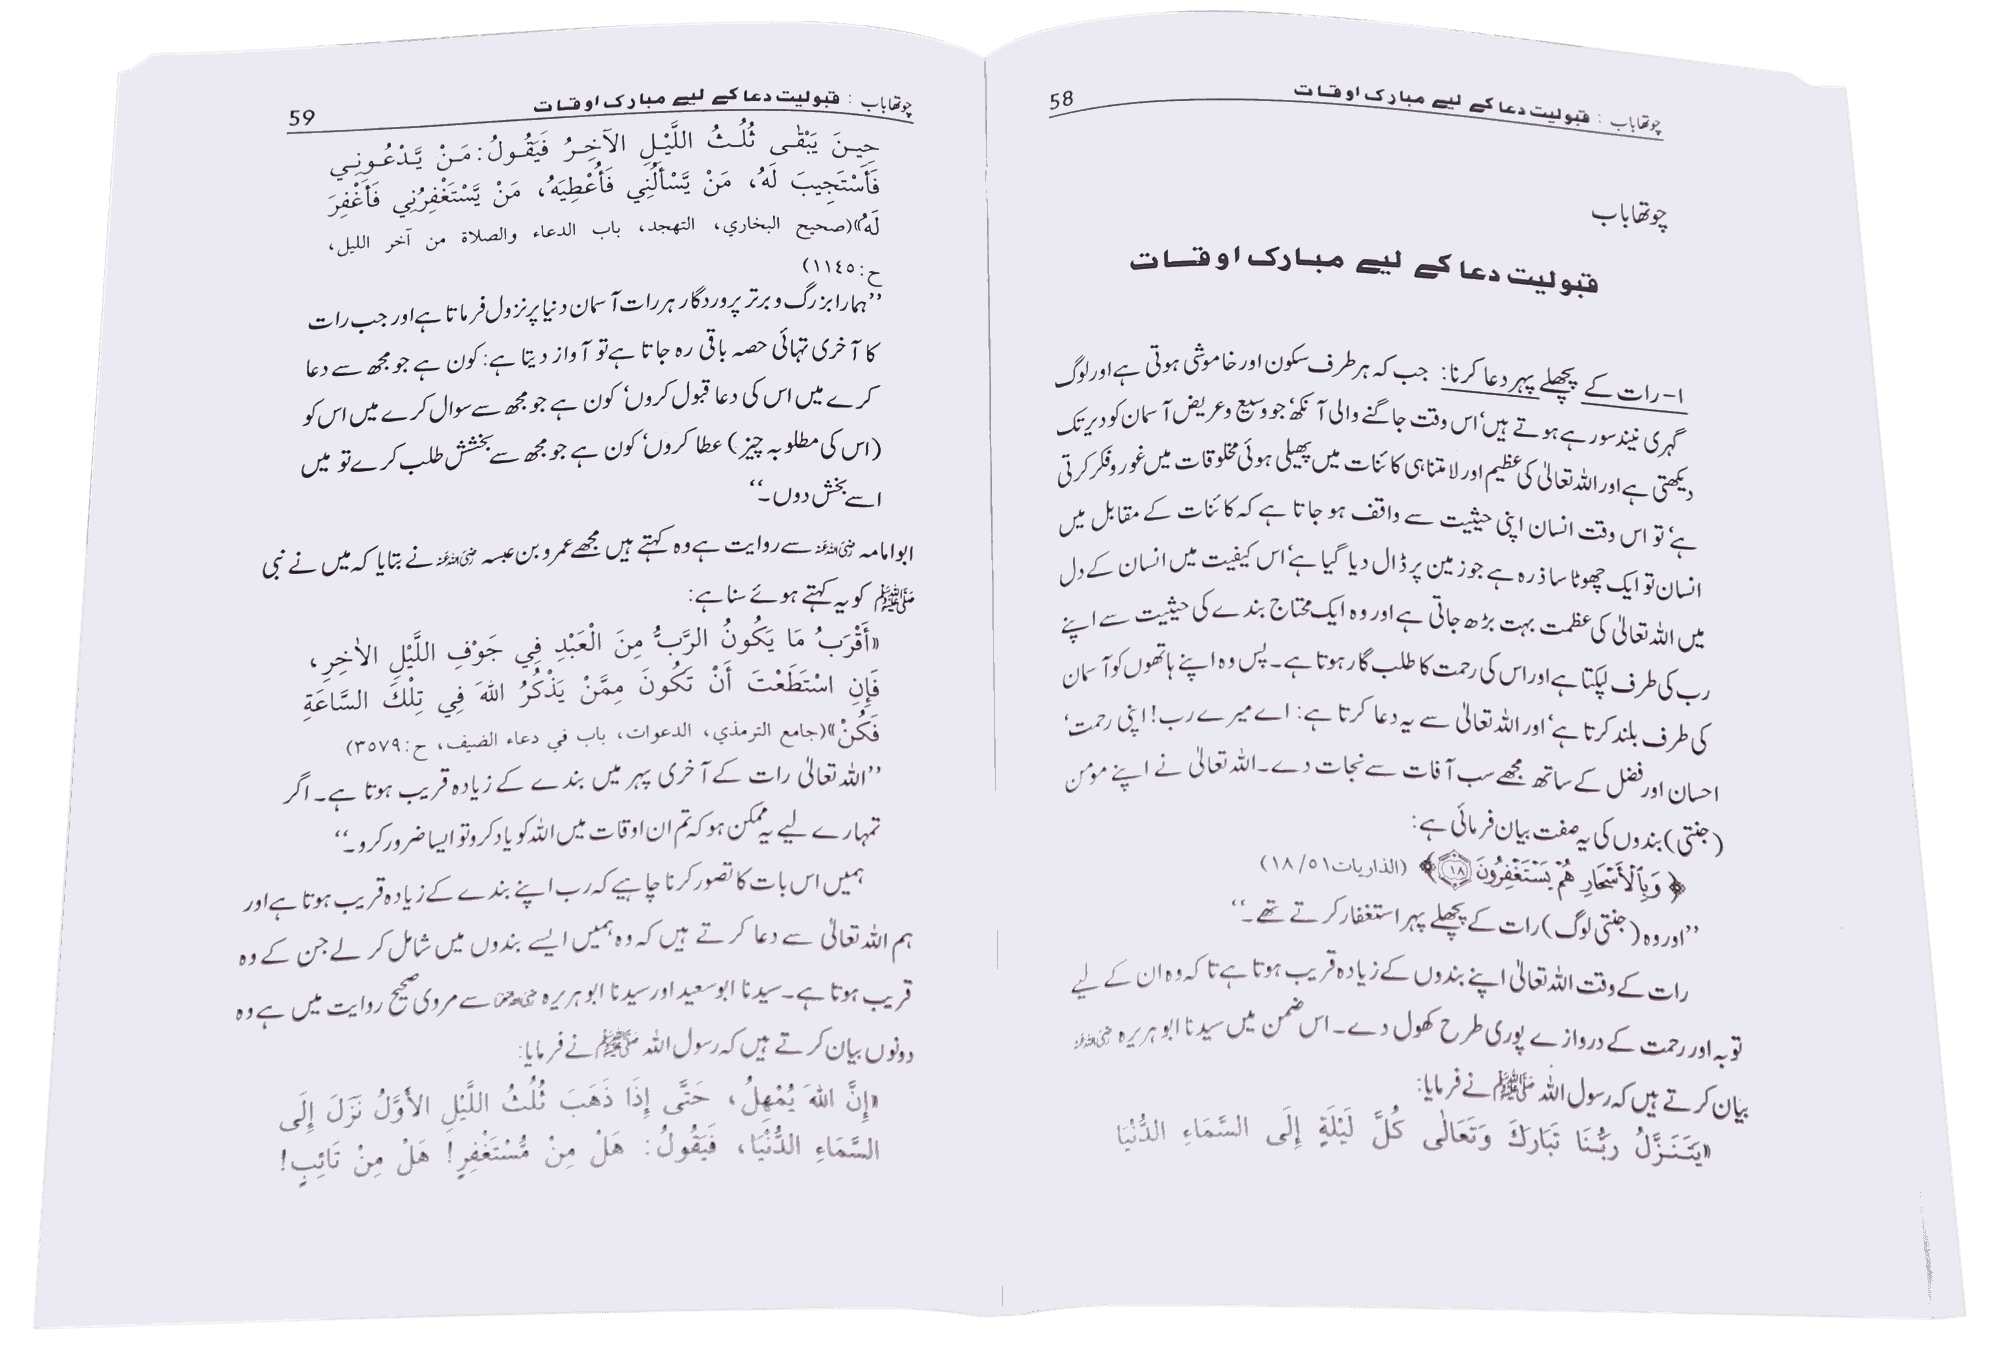 چوتھا باب : قبولیت دعا کے لیے مبارک اوقات 58
چوتھا باب
قبولیت دعا کے لیے مبارک اوقات
۱- رات کے پچھلے پہر دعا کرنا: جب کہ ہر طرف سکون اور خاموشی ہوتی ہے اور لوگ
گہری نیند سو رہے ہوتے ہیں‘ اس وقت جاگنے والی آنکھ‘ جو وسیع و عریض آسمان کو دیر تک
دیکھتی ہے اور اللہ تعالیٰ کی عظیم اور لامتناہی کائنات میں پھیلی ہوئی مخلوقات میں غور و فکر کرتی
ہے‘ تو اس وقت انسان اپنی حیثیت سے واقف ہو جاتا ہے کہ کائنات کے مقابل میں
انسان تو ایک چھوٹا سا ذرہ ہے جو زمین پر ڈال دیا گیا ہے‘ اس کیفیت میں انسان کے دل
میں اللہ تعالیٰ کی عظمت بہت بڑھ جاتی ہے اور وہ ایک محتاج بندے کی حیثیت سے اپنے
رب کی طرف لپکتا ہے اور اس کی رحمت کا طلب گار ہوتا ہے۔ پس وہ اپنے ہاتھوں کو آسمان
کی طرف بلند کرتا ہے‘ اور اللہ تعالیٰ سے یہ دعا کرتا ہے: اے میرے رب! اپنی رحمت‘
احسان اور فضل کے ساتھ مجھے سب آفات سے نجات دے۔ اللہ تعالیٰ نے اپنے مومن
(جنتی) بندوں کی یہ صفت بیان فرمائی ہے:
﴿ وَبِالْأَسْحَارِ هُمْ يَسْتَغْفِرُونَ ۱۸ ﴾ (الذاریات ۵۱/ ۱۸)
’’اور وہ (جنتی لوگ) رات کے پچھلے پہر استغفار کرتے تھے۔‘‘
رات کے وقت اللہ تعالیٰ اپنے بندوں کے زیادہ قریب ہوتا ہے تا کہ وہ ان کے لیے
توبہ اور رحمت کے دروازے پوری طرح کھول دے۔ اس ضمن میں سیدنا ابوہریرہ رضی اللہ عنہ
بیان کرتے ہیں کہ رسول اللہ ﷺ نے فرمایا:
«يَتَنَزَّلُ رَبُّنَا تَبَارَكَ وَتَعَالٰى كُلَّ لَيْلَةٍ إِلَى السَّمَاءِ الدُّنْيَا
چوتھا باب : قبولیت دعا کے لیے مبارک اوقات 59
حِينَ يَبْقٰى ثُلُثُ اللَّيْلِ الآخِرُ فَيَقُولُ: مَنْ يَّدْعُونِي
فَأَسْتَجِيبَ لَهُ، مَنْ يَّسْأَلُنِي فَأُعْطِيَهُ، مَنْ يَّسْتَغْفِرُنِي فَأَغْفِرَ
لَهُ»(صحيح البخاري، التهجد، باب الدعاء والصلاة من آخر الليل،
ح:١١٤٥)
’’ہمارا بزرگ و برتر پروردگار ہر رات آسمان دنیا پر نزول فرماتا ہے اور جب رات
کا آخری تہائی حصہ باقی رہ جاتا ہے تو آواز دیتا ہے: کون ہے جو مجھ سے دعا
کرے میں اس کی دعا قبول کروں‘ کون ہے جو مجھ سے سوال کرے میں اس کو
(اس کی مطلوبہ چیز) عطا کروں‘ کون ہے جو مجھ سے بخشش طلب کرے تو میں
اسے بخش دوں۔‘‘
ابوامامہ رضی اللہ عنہ سے روایت ہے وہ کہتے ہیں مجھے عمرو بن عبسہ رضی اللہ عنہ نے بتایا کہ میں نے نبی
ﷺ کو یہ کہتے ہوئے سنا ہے:
«أَقْرَبُ مَا يَكُونُ الرَّبُّ مِنَ الْعَبْدِ فِي جَوْفِ اللَّيْلِ الاٰخِرِ،
فَإِنِ اسْتَطَعْتَ أَنْ تَكُونَ مِمَّنْ يَذْكُرُ اللهَ فِي تِلْكَ السَّاعَةِ
فَكُنْ»(جامع الترمذي، الدعوات، باب في دعاء الضيف، ح:٣٥٧٩)
’’اللہ تعالیٰ رات کے آخری پہر میں بندے کے زیادہ قریب ہوتا ہے۔ اگر
تمہارے لیے یہ ممکن ہو کہ تم ان اوقات میں اللہ کو یاد کرو تو ایسا ضرور کرو۔‘‘
ہمیں اس بات کا تصور کرنا چاہیے کہ رب اپنے بندے کے زیادہ قریب ہوتا ہے اور
ہم اللہ تعالیٰ سے دعا کرتے ہیں کہ وہ ہمیں ایسے بندوں میں شامل کر لے جن کے وہ
قریب ہوتا ہے۔ سیدنا ابوسعید اور سیدنا ابوہریرہ رضی اللہ عنہما سے مروی صحیح روایت میں ہے وہ
دونوں بیان کرتے ہیں کہ رسول اللہ ﷺ نے فرمایا:
«إِنَّ اللهَ يُمْهِلُ، حَتَّى إِذَا ذَهَبَ ثُلُثُ اللَّيْلِ الأَوَّلُ نَزَلَ إِلَى
السَّمَاءِ الدُّنْيَا، فَيَقُولُ: هَلْ مِنْ مُّسْتَغْفِرٍ! هَلْ مِنْ تَائِبٍ!